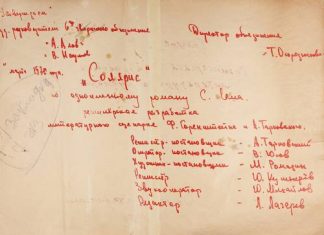 "Утверждаю"
худ. руководители 6го творческого объединения
А. Алов
В. Наумов
Директор объединения
Т. Огородникова
"март 1970 года.
"Солярис"
по одноименному роману С. Лема
режиссерская разработка
литературного сценария Ф. Горенштейна и А. Тарковского.
Режиссер-постановщик - А. Тарковский
Оператор-постановщик - В. Юсов
Художник-постановщик - М. Ромадин
Режиссер - Ю. Кушнерёв
Звукооператор - Ю. Михайлов
Редактор - Л. Лазарев